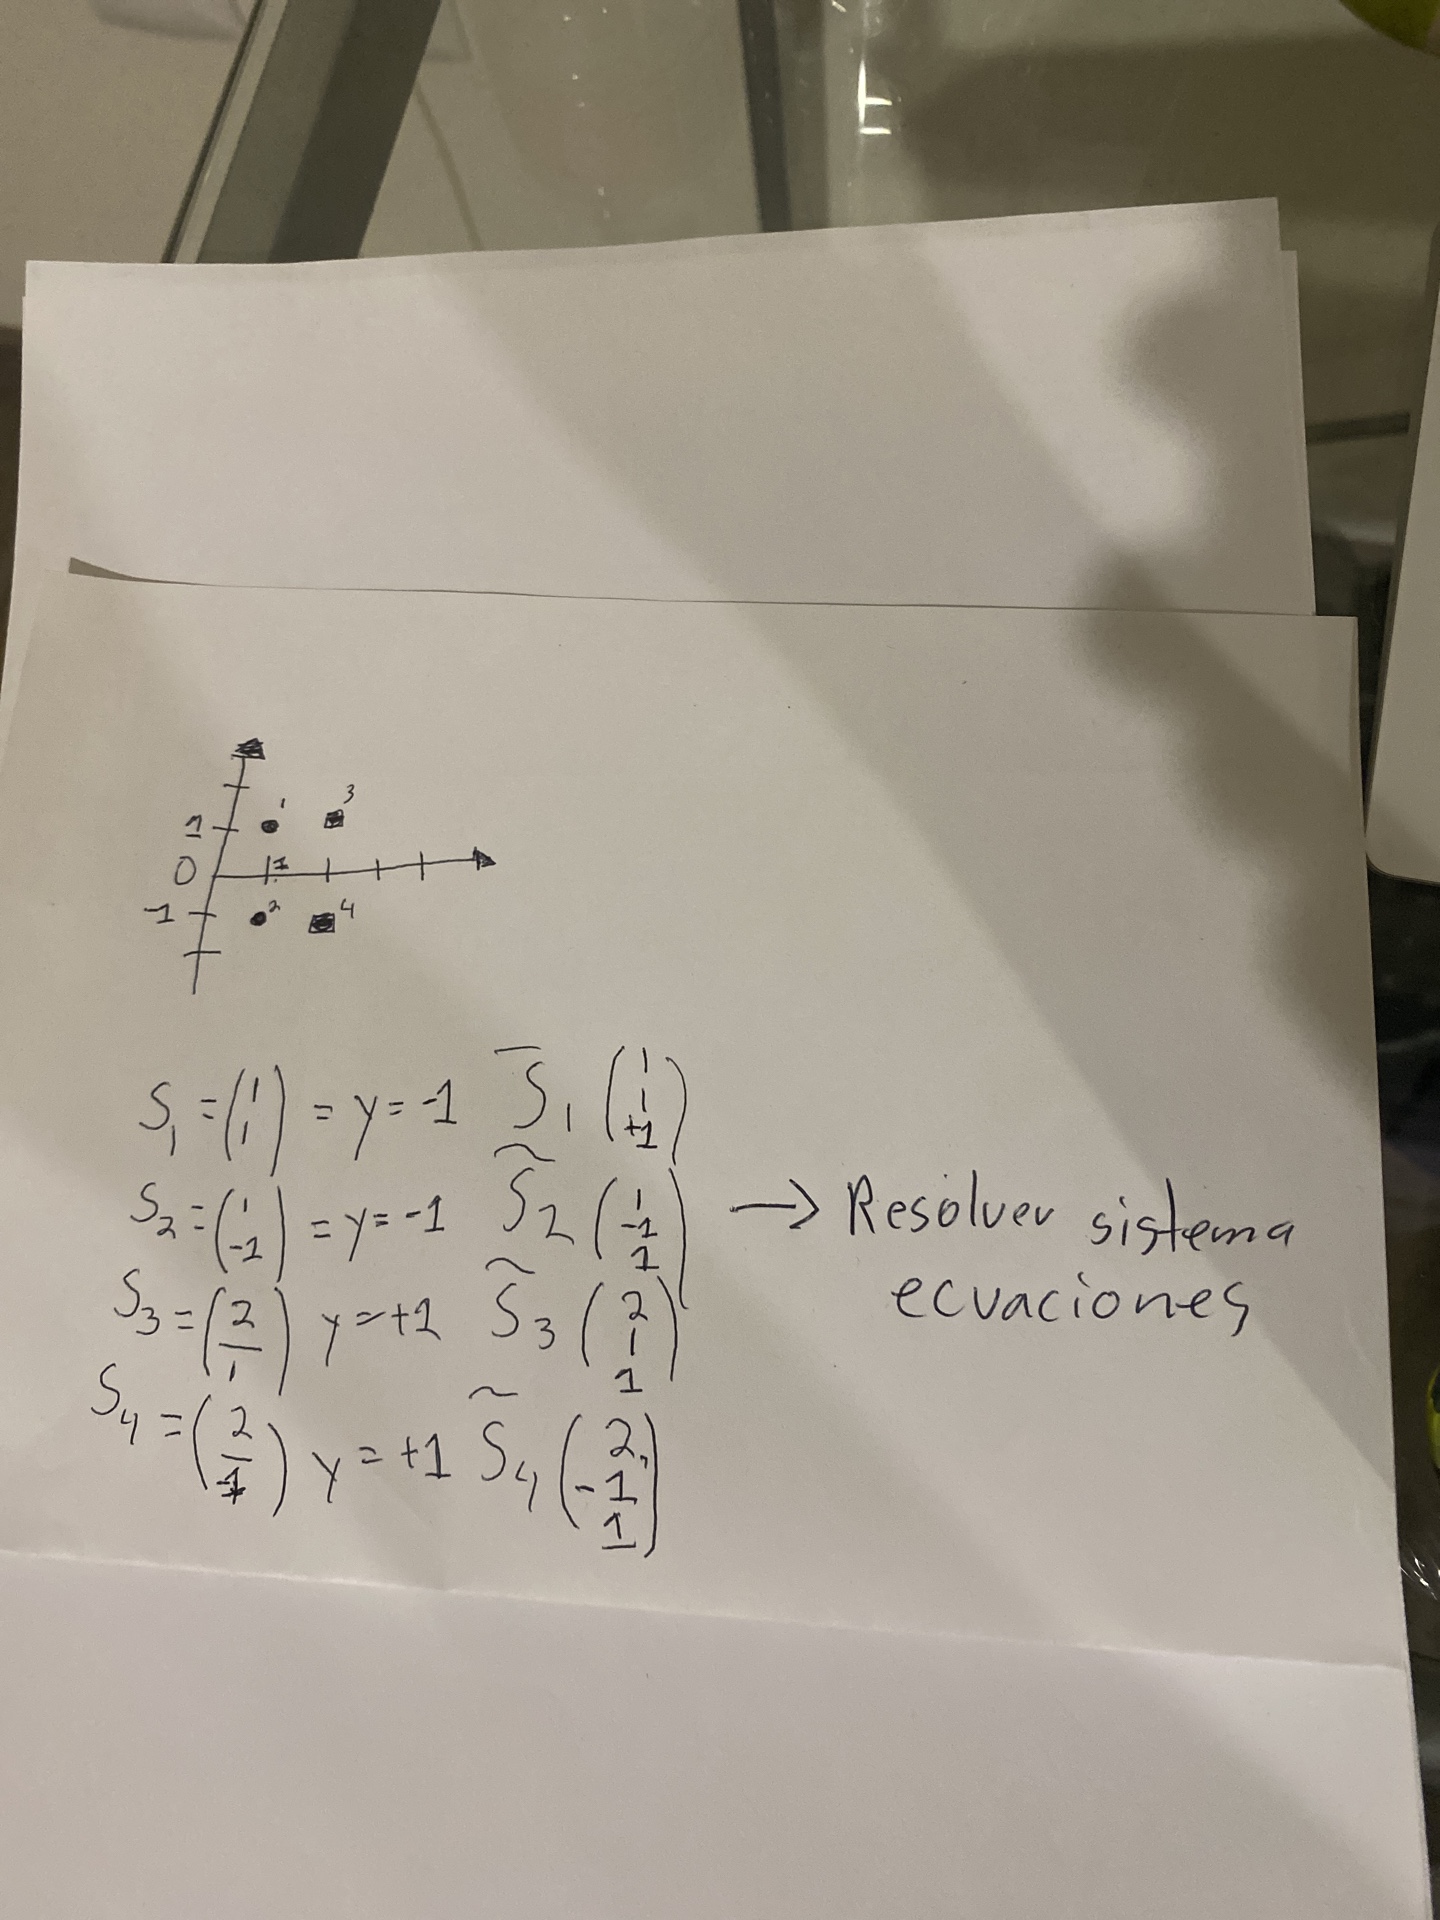 1 3
1
0 1
-1 2 4
S₁ = (1 1) = y = -1 S̅₁ (1 1 +1)
S₂ = (1 -1) = y = -1 S̃₂ (1 -1 1)
S₃ = (2 1) y = +1 S̃₃ (2 1 1)
S₄ = (2 -1) y = +1 S̃₄ (2 -1 1)
→ Resolver sistema
ecuaciones